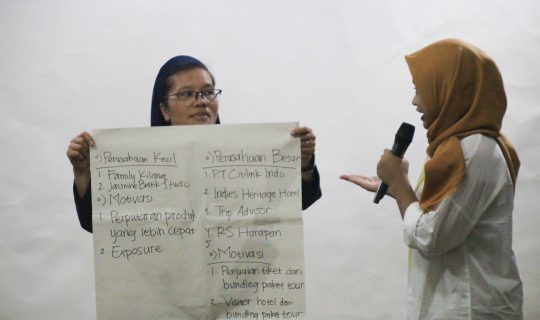 o) Perusahaan Kecil
1. Family Kilang
2. Jasmine Batik Studio
o) Motivasi
1. Perpuaran produk
yang lebih cepat
2. Exposure
o) Perusahaan Besar
1. PT Civilink Indo
2. Indies Heritage Hotel
3. Trip Advisor
4. RS Harapan
5.
o) Motivasi
1. Penjualan tiket dari
bunding paket tour
2. Visitor hotel dan
bunding paket tour